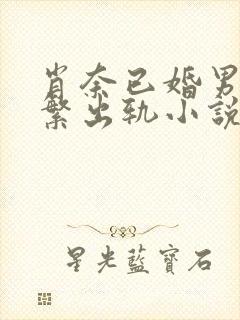 肖奈已婚男
繁出轨小說
星光藍寶石